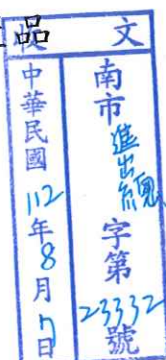 品
收文
南市進出字第23332號
中華民國112年8月7日